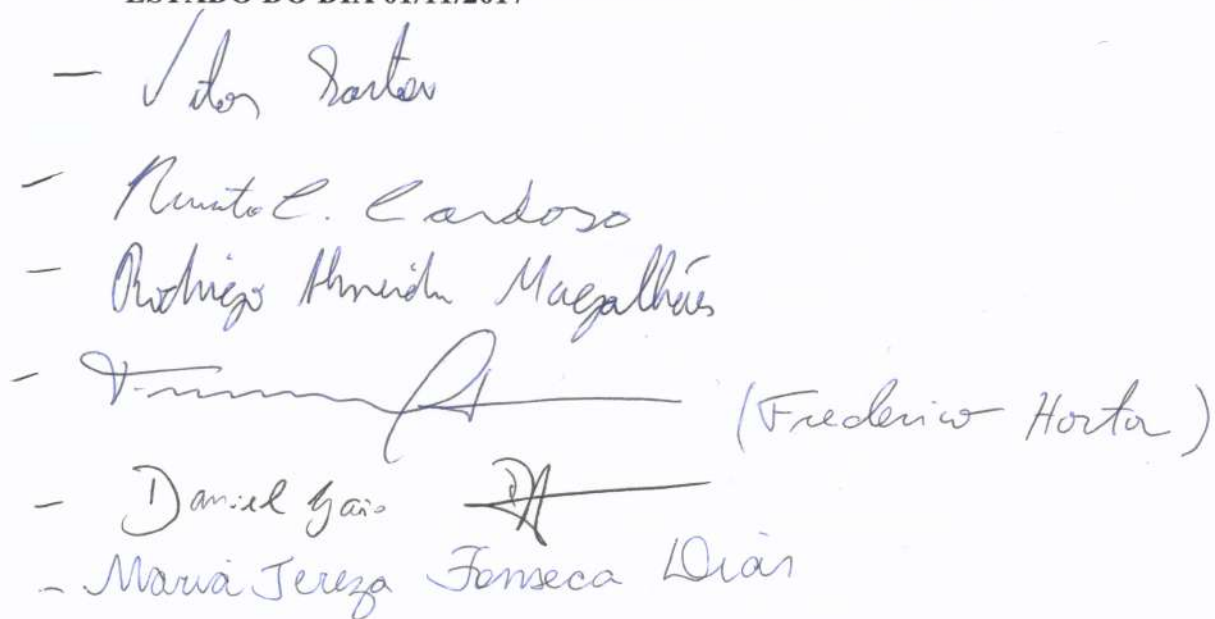 ESTADO DO DIA 01/11/2017
- Vitor Santos
- Renato C. Cardoso
- Rodrigo Almeida Magalhães
- (Frederico Horta)
- Daniel Gaio
- Maria Tereza Fonseca Dias